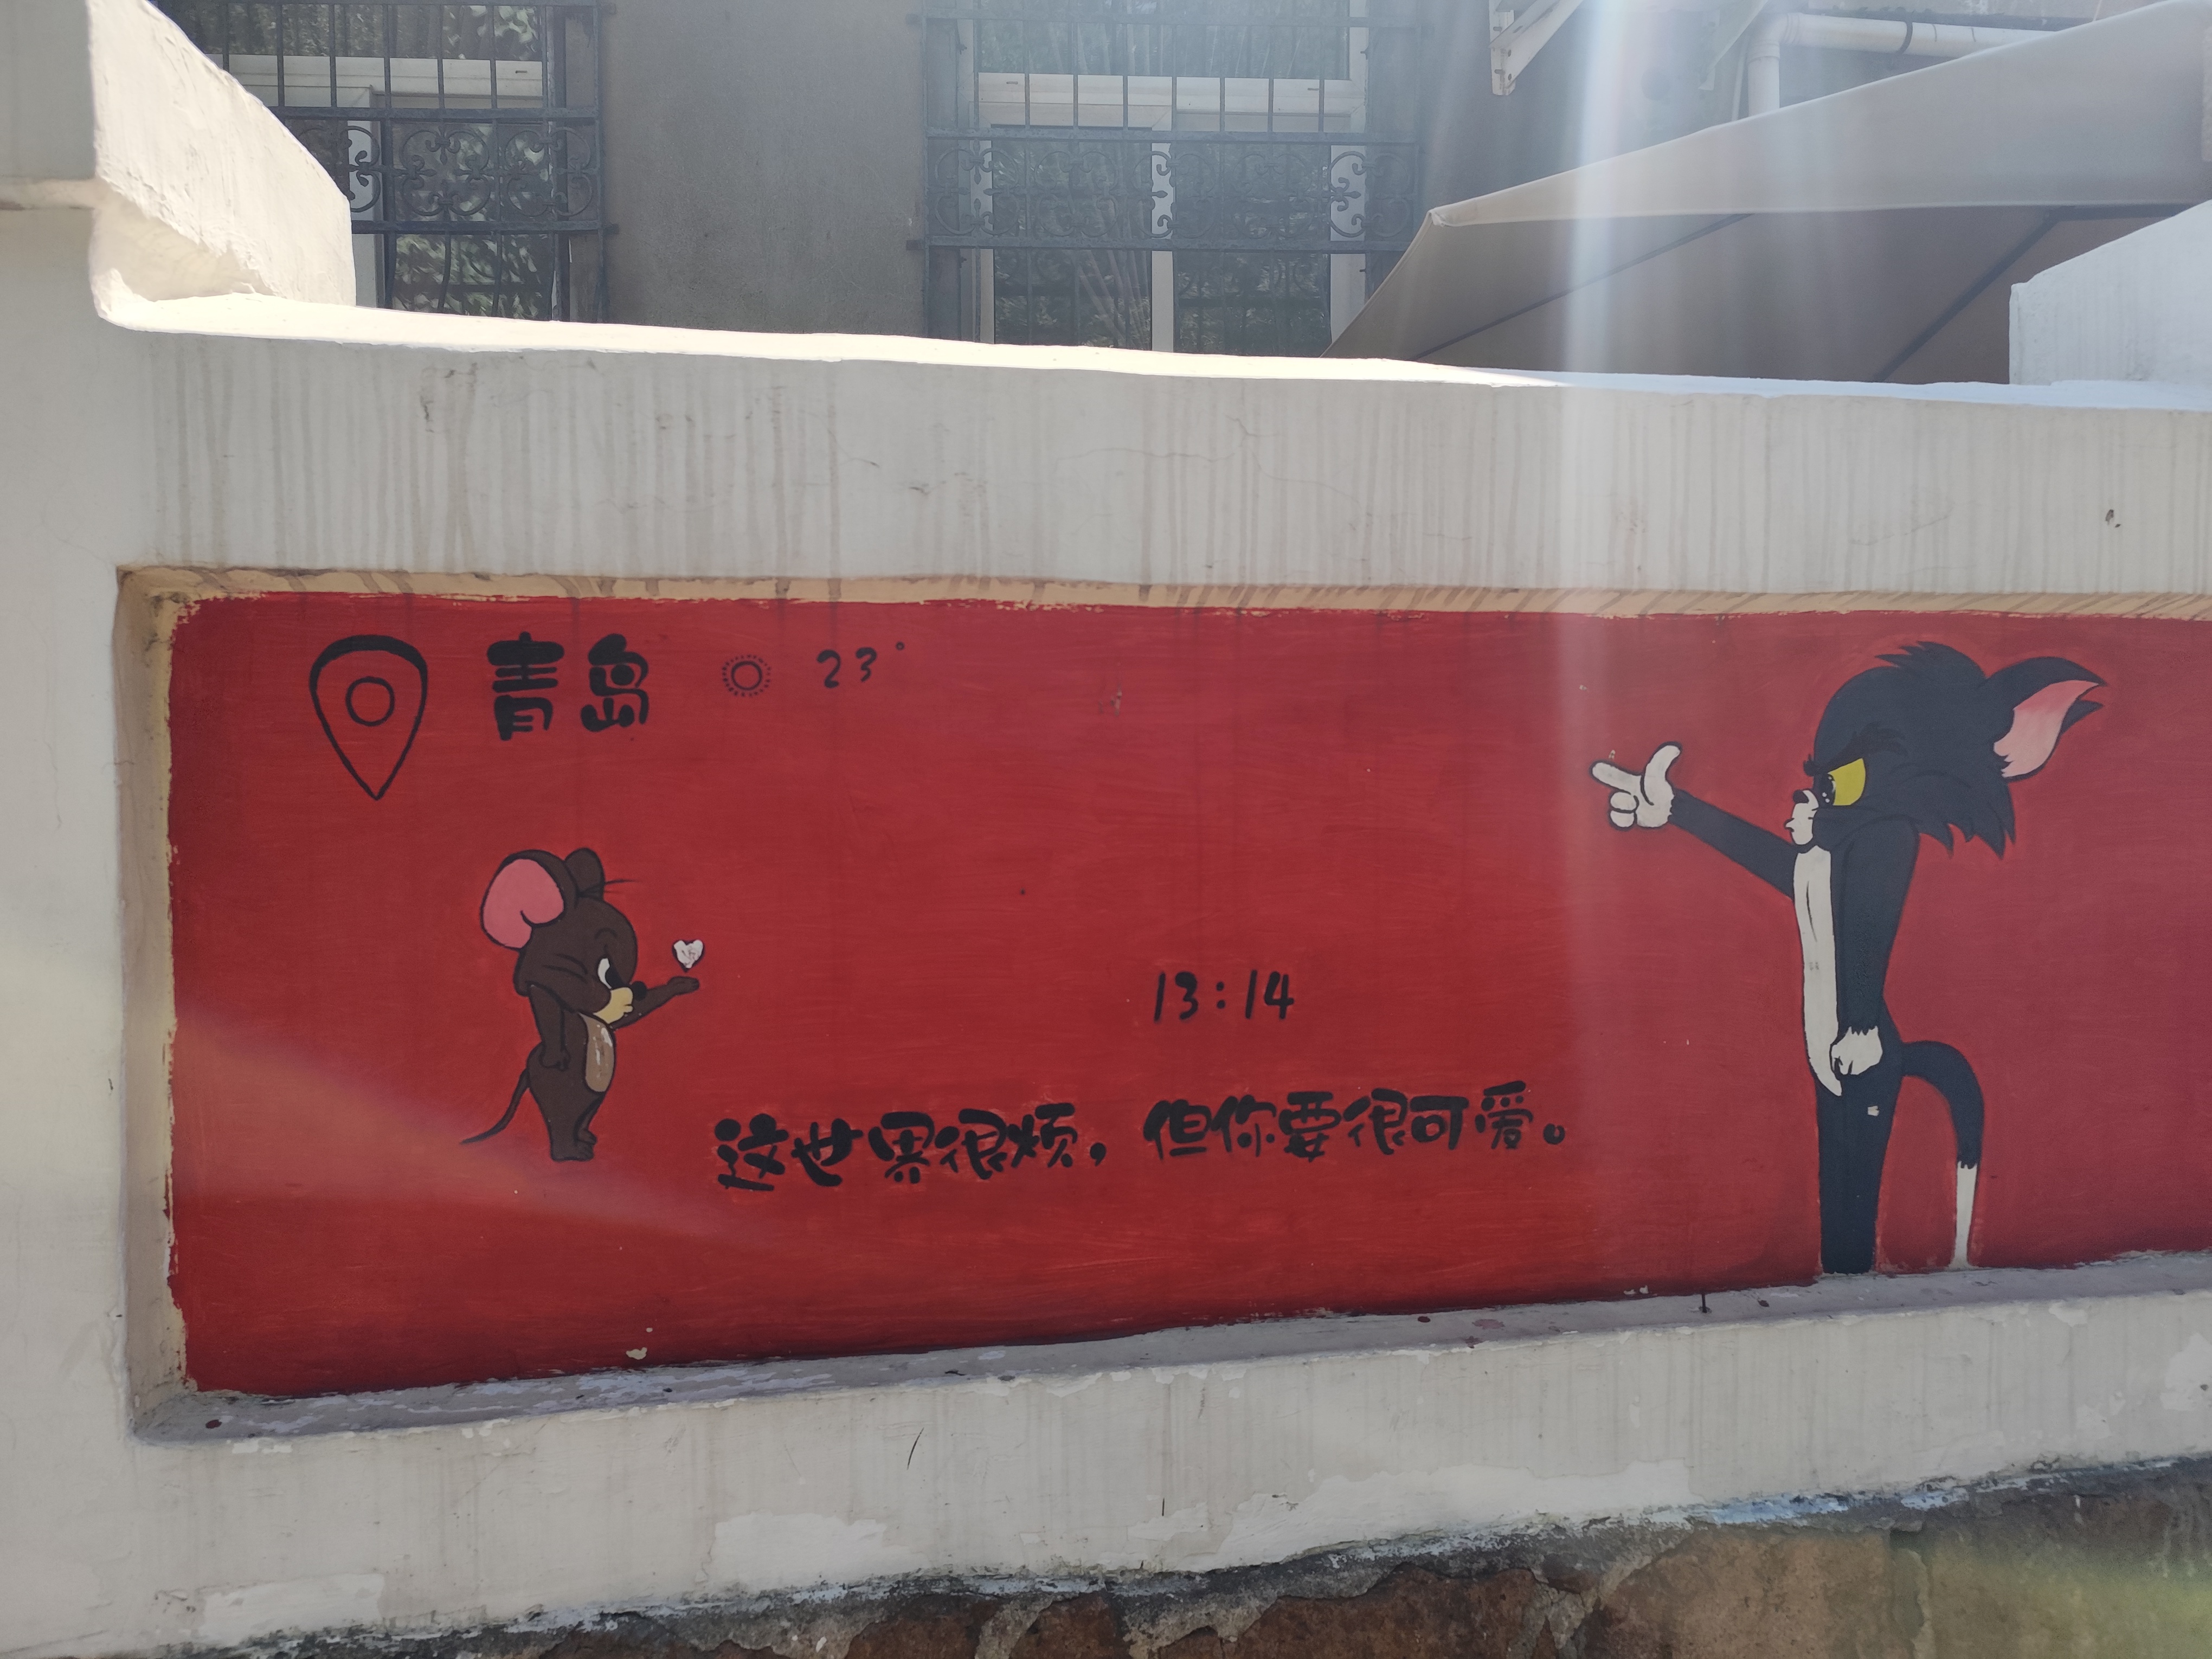 青岛 23°
13:14
这世界很烦，但你要很可爱。